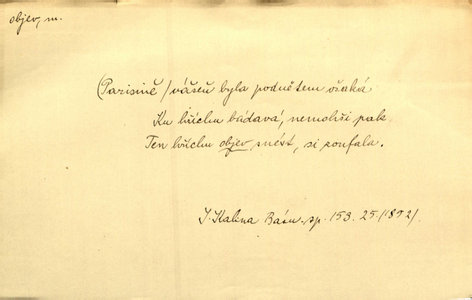 objev, m.
(Parisině) vášeň byla podnětem
Ku hříchu bádavá, nemohši pak
Ten hříchu objev snést, si zoufala.
J. Kalina Básn. sp. 153. 25 (1852).